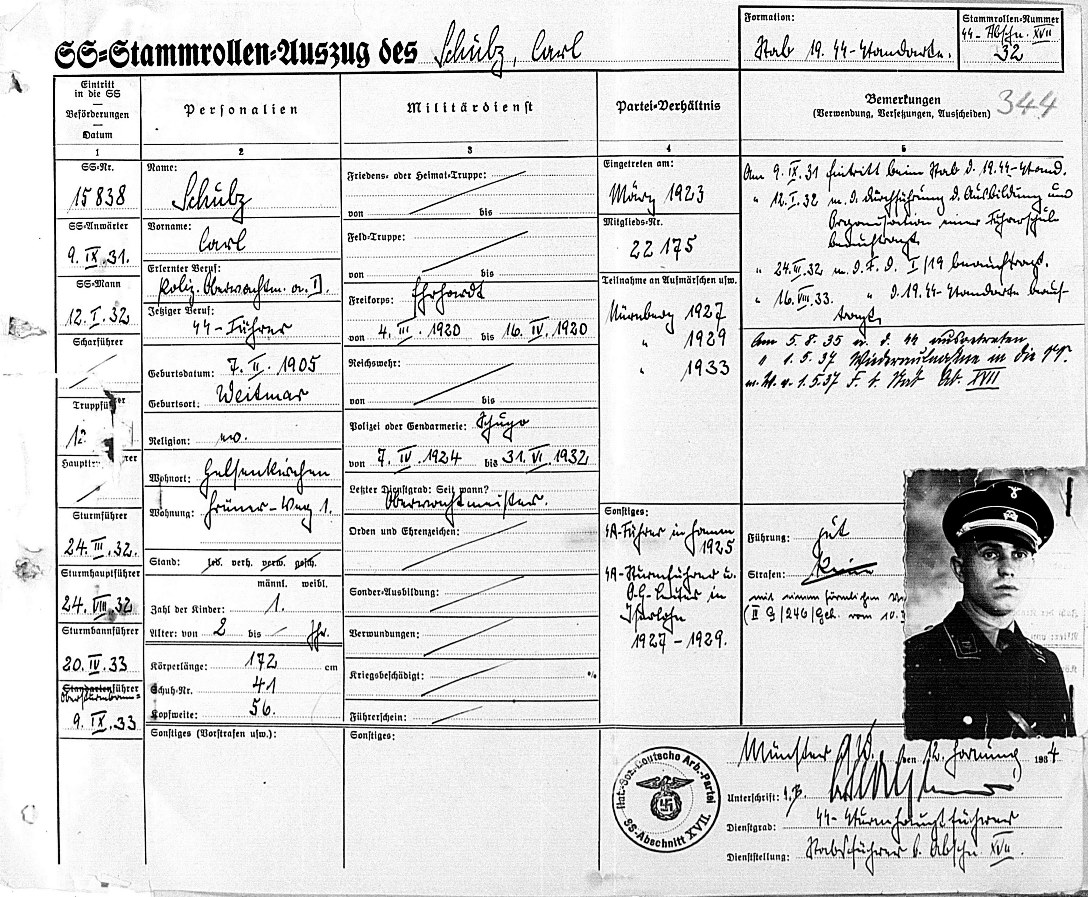 SS-Stammrollen-Auszug des Schulz, Carl
Formation:
Stab 19. SS-Standarte.
Stammrollen-Nummer
SS-Abschn. XVII
32
344
Eintritt
in die SS
—
Beförderungen
—
Datum
Personalien
Militärdienst
Partei-Verhältnis
Bemerkungen
(Verwendung, Versetzungen, Ausscheiden)
1
2
3
4
5
SS-Nr.
15838
SS-Anwärter
9. IX. 31.
SS-Mann
12. I. 32
Scharführer
Sturmführer
24. III. 32.
Sturmhauptführer
24. VIII. 32
Sturmbannführer
20. IV. 33
Standartenführer
Obersturmbann-
9. IX. 33
Name:
Schulz
Vorname:
Carl
Erlernter Beruf:
Poliz. Oberwachtm. a. D.
Jetziger Beruf:
SS-Führer
Geburtsdatum: 7. II. 1905
Geburtsort: Weitmar
Religion: ev.
Wohnort: Gelsenkirchen
Wohnung: Grüner-Weg 1.
Stand: led. verh. verw. gesch.
männl. weibl.
Zahl der Kinder: 1.
Alter: von 2 bis Jhr.
Körperlänge: 172 cm
Schuh-Nr. 41
Kopfweite: 56.
Sonstiges (Vorstrafen usw.):
Friedens- oder Heimat-Truppe:
von bis
Feld-Truppe:
von bis
Freikorps: Ehrhardt
von 4. III. 1920 bis 16. IV. 1920
Reichswehr:
von bis
Polizei oder Gendarmerie: Schupo
von 7. IV. 1924 bis 31. VI. 1932
Letzter Dienstgrad: Seit wann?
Oberwachtmeister.
Orden und Ehrenzeichen:
Sonder-Ausbildung:
Verwundungen:
Kriegsbeschädigt: %
Führerschein:
Sonstiges:
Eingetreten am:
März 1923
Mitglieds-Nr.
22 175
Teilnahme an Aufmärschen usw.
Nürnberg 1927
" 1929
" 1933
Sonstiges:
SA-Führer in Hamm
1925
SA-Sturmführer u.
O.G.-Leiter in
Iserlohn
1927 – 1929.
Am 9. IX. 31 Eintritt beim Stab d. 19. SS-Stand.
" 12. I. 32 m. d. Durchführung d. Ausbildung und
Organisation einer Führerschule
beauftragt.
" 24. III. 32 m. d. F. d. I/19 beauftragt.
" 16. VIII. 33. " d. 19. SS-Standarte beauf-
tragt.
Am 5.8.35 a. d. SS ausgetreten
" 1.5.37 Wiederaufnahme in die SS.
m. W. v. 1.5.37 F. b. Stab Ab. XVII
Führung: gut
Strafen: Keine
mit einem förmlichen
(II G/246/Geh. vom 10.
Münster i/W., den 12. Hornung 1934
Unterschrift: i.V.
Dienstgrad: SS-Sturmhauptführer
Dienststellung: Stabsführer b. Abschn. XVII.
Nat.-Soz. Deutsche Arb.-Partei
SS-Abschnitt XVII.